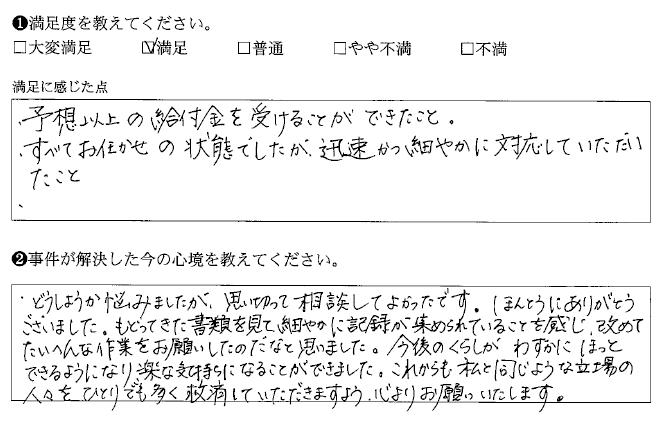 ❶満足度を教えてください。
□大変満足 ☑満足 □普通 □やや不満 □不満
満足に感じた点
・予想以上の給付金を受けることができたこと。
・すべてお任かせの状態でしたが、迅速かつ細やかに対応していただい
たこと
・
❷事件が解決した今の心境を教えてください。
・どうしようか悩みましたが、思い切って相談してよかったです。ほんとうにありがとう
ございました。もどってきた書類を見て、細やかに記録が集められていることを感じ、改めて
たいへんな作業をお願いしたのだなと思いました。今後のくらしがわずかにほっと
できるようになり楽な気持ちになることができました。これからも私と同じような立場の
人々をひとりでも多く救済していただきますよう、心よりお願いいたします。